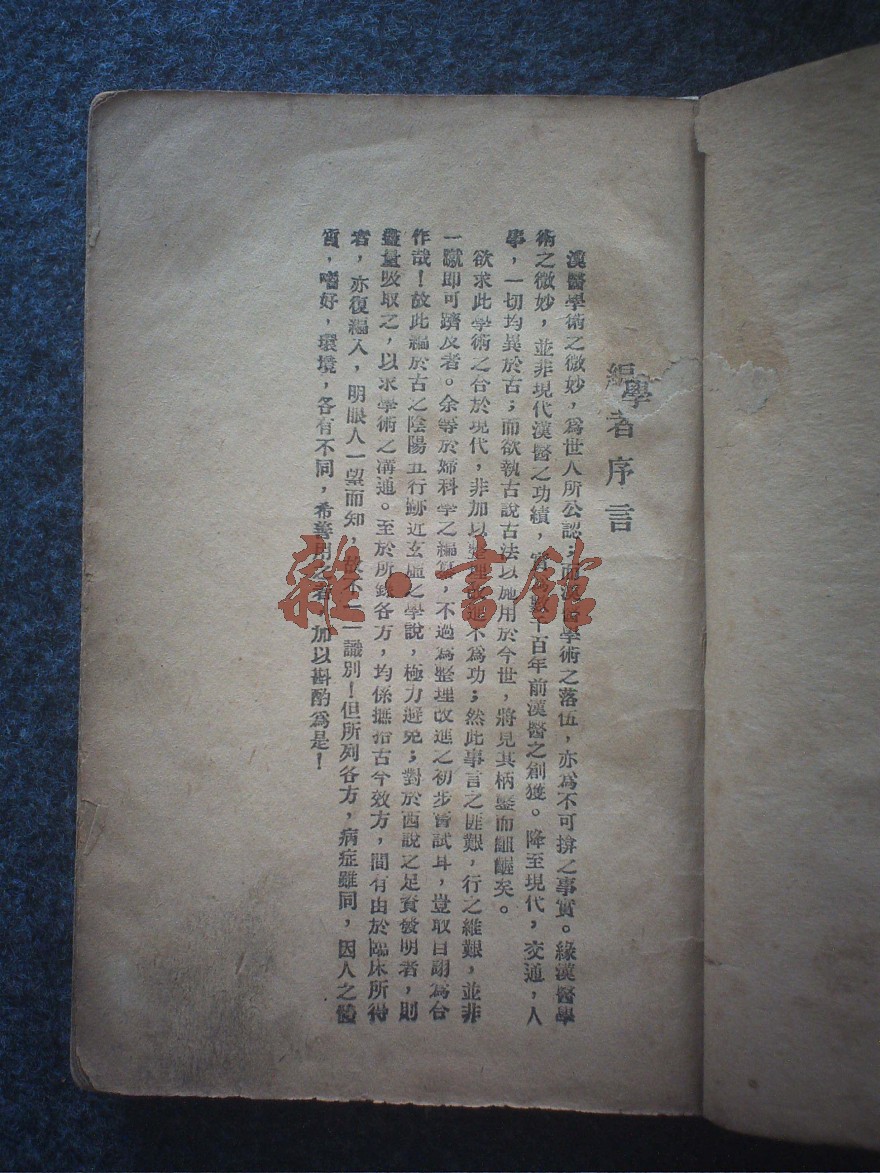 編者序言
學
漢醫學術之微妙，為世人所公認；而漢醫學術之落伍，亦為不可揜之事實。緣漢醫學
術之微妙，並非現代漢醫之功績，實數千百年前漢醫之創獲。降至現代，交通，人
事，一切均異於古；而欲執古說古法以施用於今世，將見其柄鑿而齟齬矣。
欲求此學術之合於現代，非加以整理改進不為功；然此事言之匪艱，行之維艱，並非
一蹴即可躋及者。余等於婦科學之編纂，不過為整理改進之初步嘗試耳，豈敢自詡為合
作哉！故此編於古之陰陽五行跡近玄虛之學說，極力避免；對於西說之足資發明者，則
儘量吸取之，以求學術之溝通。至於所錄各方，均係摭拾古今效方，間有由於臨床所得
者，亦復編入，明眼人一望而知，故不一一識別！但所列各方，病症雖同，因人之體
質，嗜好，環境，各有不同，希善用之者，加以斟酌為是！
雜·書館